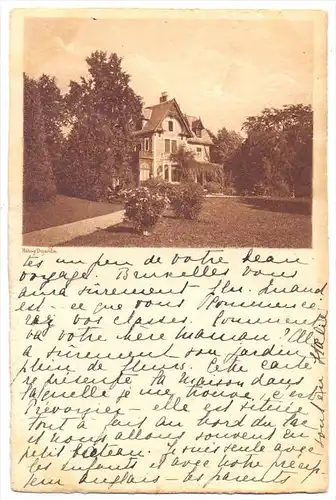 tés un peu de votre beau
voyage. Bruxelles vous
aura sûrement plu. Quand
est-ce que vous commence-
rez vos classes. Comment
va votre chère maman? Elle
a sûrement son jardin
plein de fleurs. Cette carte
représente la maison dans
laquelle je me trouve, c'est
Prévorzier - elle est située
tout à fait au bord du lac
et nous allons souvent en
petit bateau. Je suis seule avec
les enfants et avec notre précep
teur anglais - les parents